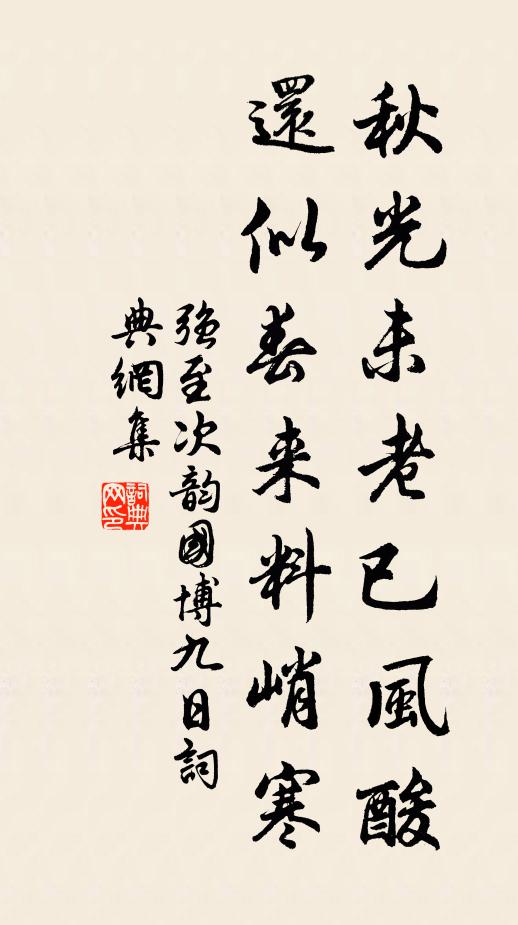 秋光未老已風酸
還似春来料峭寒
強至次韵國博九日詞
典網集
詞典
网印